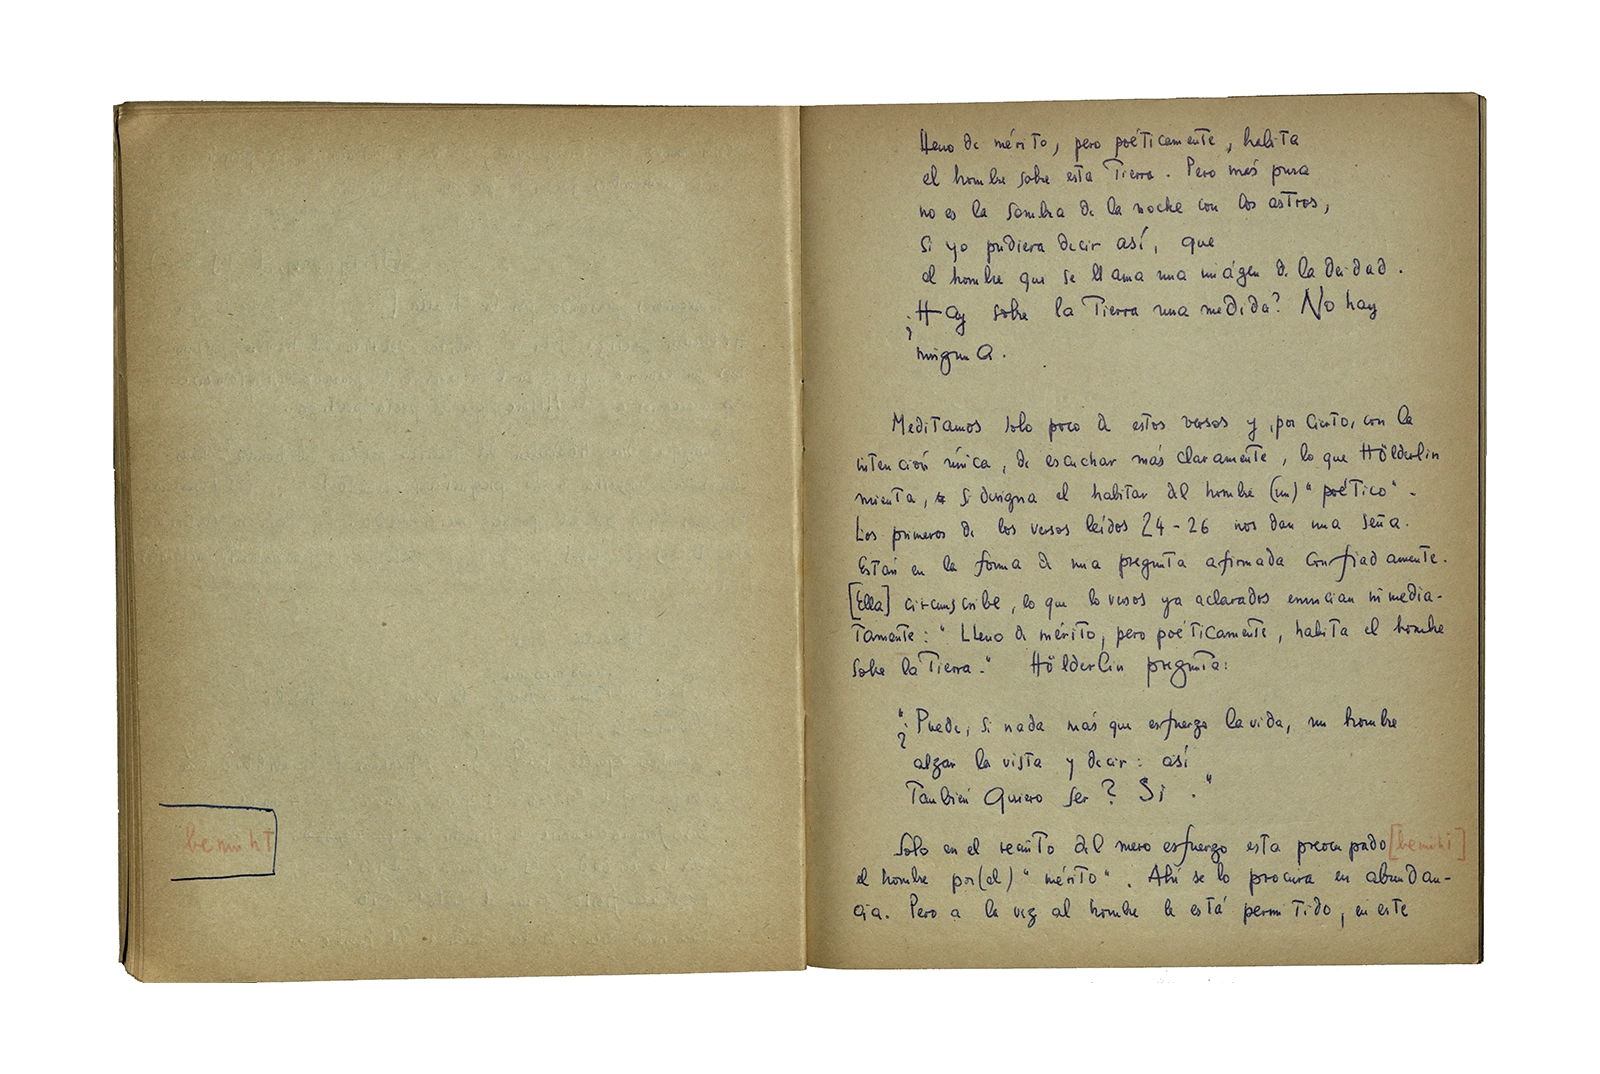 bemüht
lleno de mérito, pero poéticamente, habita
el hombre sobre esta Tierra. Pero más pura
no es la sombra de la noche con los astros,
si yo pudiera decir así, que
el hombre que se llama una imágen de la deidad.
¿Hay sobre la Tierra una medida? No hay
ninguna.
Meditamos solo poco de estos versos y, por cierto, con la
intención única, de escuchar más claramente, lo que Hölderlin
mienta, si designa el habitar del hombre (un) "poético".
Los primeros de los versos leídos 24-26 nos dan una seña.
Están en la forma de una pregunta afirmada confiadamente.
[Ella] circunscribe, lo que lo versos ya aclarados enuncian inmedia-
tamente: "Lleno de mérito, pero poéticamente, habita el hombre
sobre la Tierra." Hölderlin pregunta:
"¿Puede, si nada más que esfuerzo la vida, un hombre
alzar la vista y decir: así
También quiero ser? Sí."
Solo en el recinto del mero esfuerzo esta preocupado [bemüht]
el hombre por (el) "mérito". Ahí se lo procura en abundan-
cia. Pero a la vez al hombre le está permitido, en este